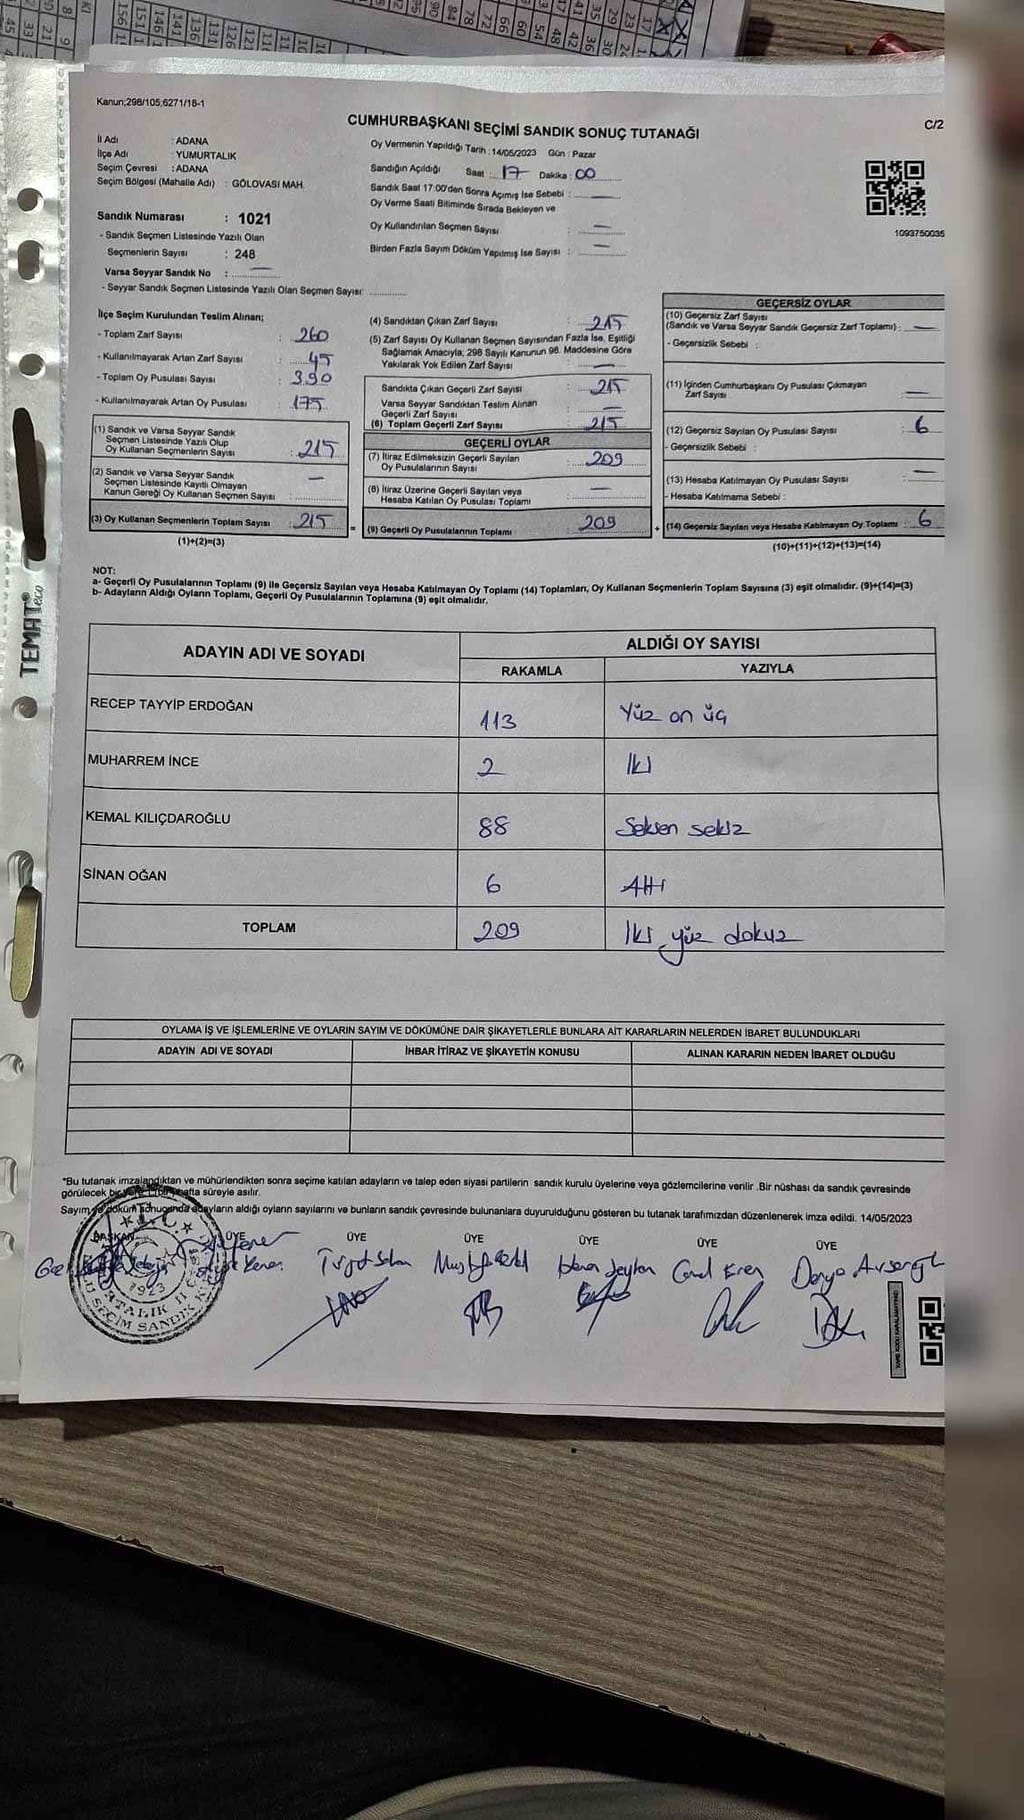 Kanun;298/105;6271/18-1
C/2
CUMHURBAŞKANI SEÇİMİ SANDIK SONUÇ TUTANAĞI
İl Adı : ADANA
İlçe Adı : YUMURTALIK
Seçim Çevresi : ADANA
Seçim Bölgesi (Mahalle Adı) : GÖLOVASI MAH.
Sandık Numarası : 1021
- Sandık Seçmen Listesinde Yazılı Olan
Seçmenlerin Sayısı : 248
Varsa Seyyar Sandık No : —
- Seyyar Sandık Seçmen Listesinde Yazılı Olan Seçmen Sayısı: ............
Oy Vermenin Yapıldığı Tarih : 14/05/2023 Gün : Pazar
Sandığın Açıldığı Saat : 17 Dakika : 00
Sandık Saat 17:00'den Sonra Açımış İse Sebebi : —
Oy Verme Saati Bitiminde Sırada Bekleyen ve
Oy Kullandırılan Seçmen Sayısı : —
Birden Fazla Sayım Döküm Yapılmış İse Sayısı : —
1093750035
İlçe Seçim Kurulundan Teslim Alınan;
- Toplam Zarf Sayısı : 260
- Kullanılmayarak Artan Zarf Sayısı : 45
- Toplam Oy Pusulası Sayısı : 390
- Kullanılmayarak Artan Oy Pusulası : 175
(1) Sandık ve Varsa Seyyar Sandık
Seçmen Listesinde Yazılı Olup
Oy Kullanan Seçmenlerin Sayısı : 215
(2) Sandık ve Varsa Seyyar Sandık
Seçmen Listesinde Kayıtlı Olmayan
Kanun Gereği Oy Kullanan Seçmen Sayısı : —
(3) Oy Kullanan Seçmenlerin Toplam Sayısı : 215
(1)+(2)=(3)
(4) Sandıktan Çıkan Zarf Sayısı : 215
(5) Zarf Sayısı Oy Kullanan Seçmen Sayısından Fazla İse, Eşitliği
Sağlamak Amacıyla; 298 Sayılı Kanunun 98. Maddesine Göre
Yakılarak Yok Edilen Zarf Sayısı : —
Sandıkta Çıkan Geçerli Zarf Sayısı : 215
Varsa Seyyar Sandıktan Teslim Alınan
Geçerli Zarf Sayısı : —
(6) Toplam Geçerli Zarf Sayısı : 215
GEÇERLİ OYLAR
(7) İtiraz Edilmeksizin Geçerli Sayılan
Oy Pusulalarının Sayısı : 209
(8) İtiraz Üzerine Geçerli Sayılan veya
Hesaba Katılan Oy Pusulası Toplamı : —
= (9) Geçerli Oy Pusulalarının Toplamı : 209
GEÇERSİZ OYLAR
(10) Geçersiz Zarf Sayısı
(Sandık ve Varsa Seyyar Sandık Geçersiz Zarf Toplamı) : —
- Geçersizlik Sebebi :
(11) İçinden Cumhurbaşkanı Oy Pusulası Çıkmayan
Zarf Sayısı : —
(12) Geçersiz Sayılan Oy Pusulası Sayısı : 6
- Geçersizlik Sebebi :
(13) Hesaba Katılmayan Oy Pusulası Sayısı : —
- Hesaba Katılmama Sebebi :
+ (14) Geçersiz Sayılan veya Hesaba Katılmayan Oy Toplamı : 6
(10)+(11)+(12)+(13)=(14)
NOT:
a- Geçerli Oy Pusulalarının Toplamı (9) ile Geçersiz Sayılan veya Hesaba Katılmayan Oy Toplamı (14) Toplamları, Oy Kullanan Seçmenlerin Toplam Sayısına (3) eşit olmalıdır. (9)+(14)=(3)
b- Adayların Aldığı Oyların Toplamı, Geçerli Oy Pusulalarının Toplamına (9) eşit olmalıdır.
TEMAT® eco
ADAYIN ADI VE SOYADI ALDIĞI OY SAYISI
RAKAMLA YAZIYLA
RECEP TAYYİP ERDOĞAN 113 Yüz on üç
MUHARREM İNCE 2 İki
KEMAL KILIÇDAROĞLU 88 Seksen sekiz
SİNAN OĞAN 6 Altı
TOPLAM 209 İki yüz dokuz
OYLAMA İŞ VE İŞLEMLERİNE VE OYLARIN SAYIM VE DÖKÜMÜNE DAİR ŞİKAYETLERLE BUNLARA AİT KARARLARIN NELERDEN İBARET BULUNDUKLARI
ADAYIN ADI VE SOYADI İHBAR İTİRAZ VE ŞİKAYETİN KONUSU ALINAN KARARIN NEDEN İBARET OLDUĞU
*Bu tutanak imzalandıktan ve mühürlendikten sonra seçime katılan adayların ve talep eden siyasi partilerin sandık kurulu üyelerine veya gözlemcilerine verilir .Bir nüshası da sandık çevresinde
görülecek bir yere 1 (bir) hafta süreyle asılır.
Sayım ve döküm sonucunda adayların aldığı oyların sayılarını ve bunların sandık çevresinde bulunanlara duyurulduğunu gösteren bu tutanak tarafımızdan düzenlenerek imza edildi. 14/05/2023
BAŞKAN ÜYE ÜYE ÜYE ÜYE ÜYE ÜYE
T.C.
1923